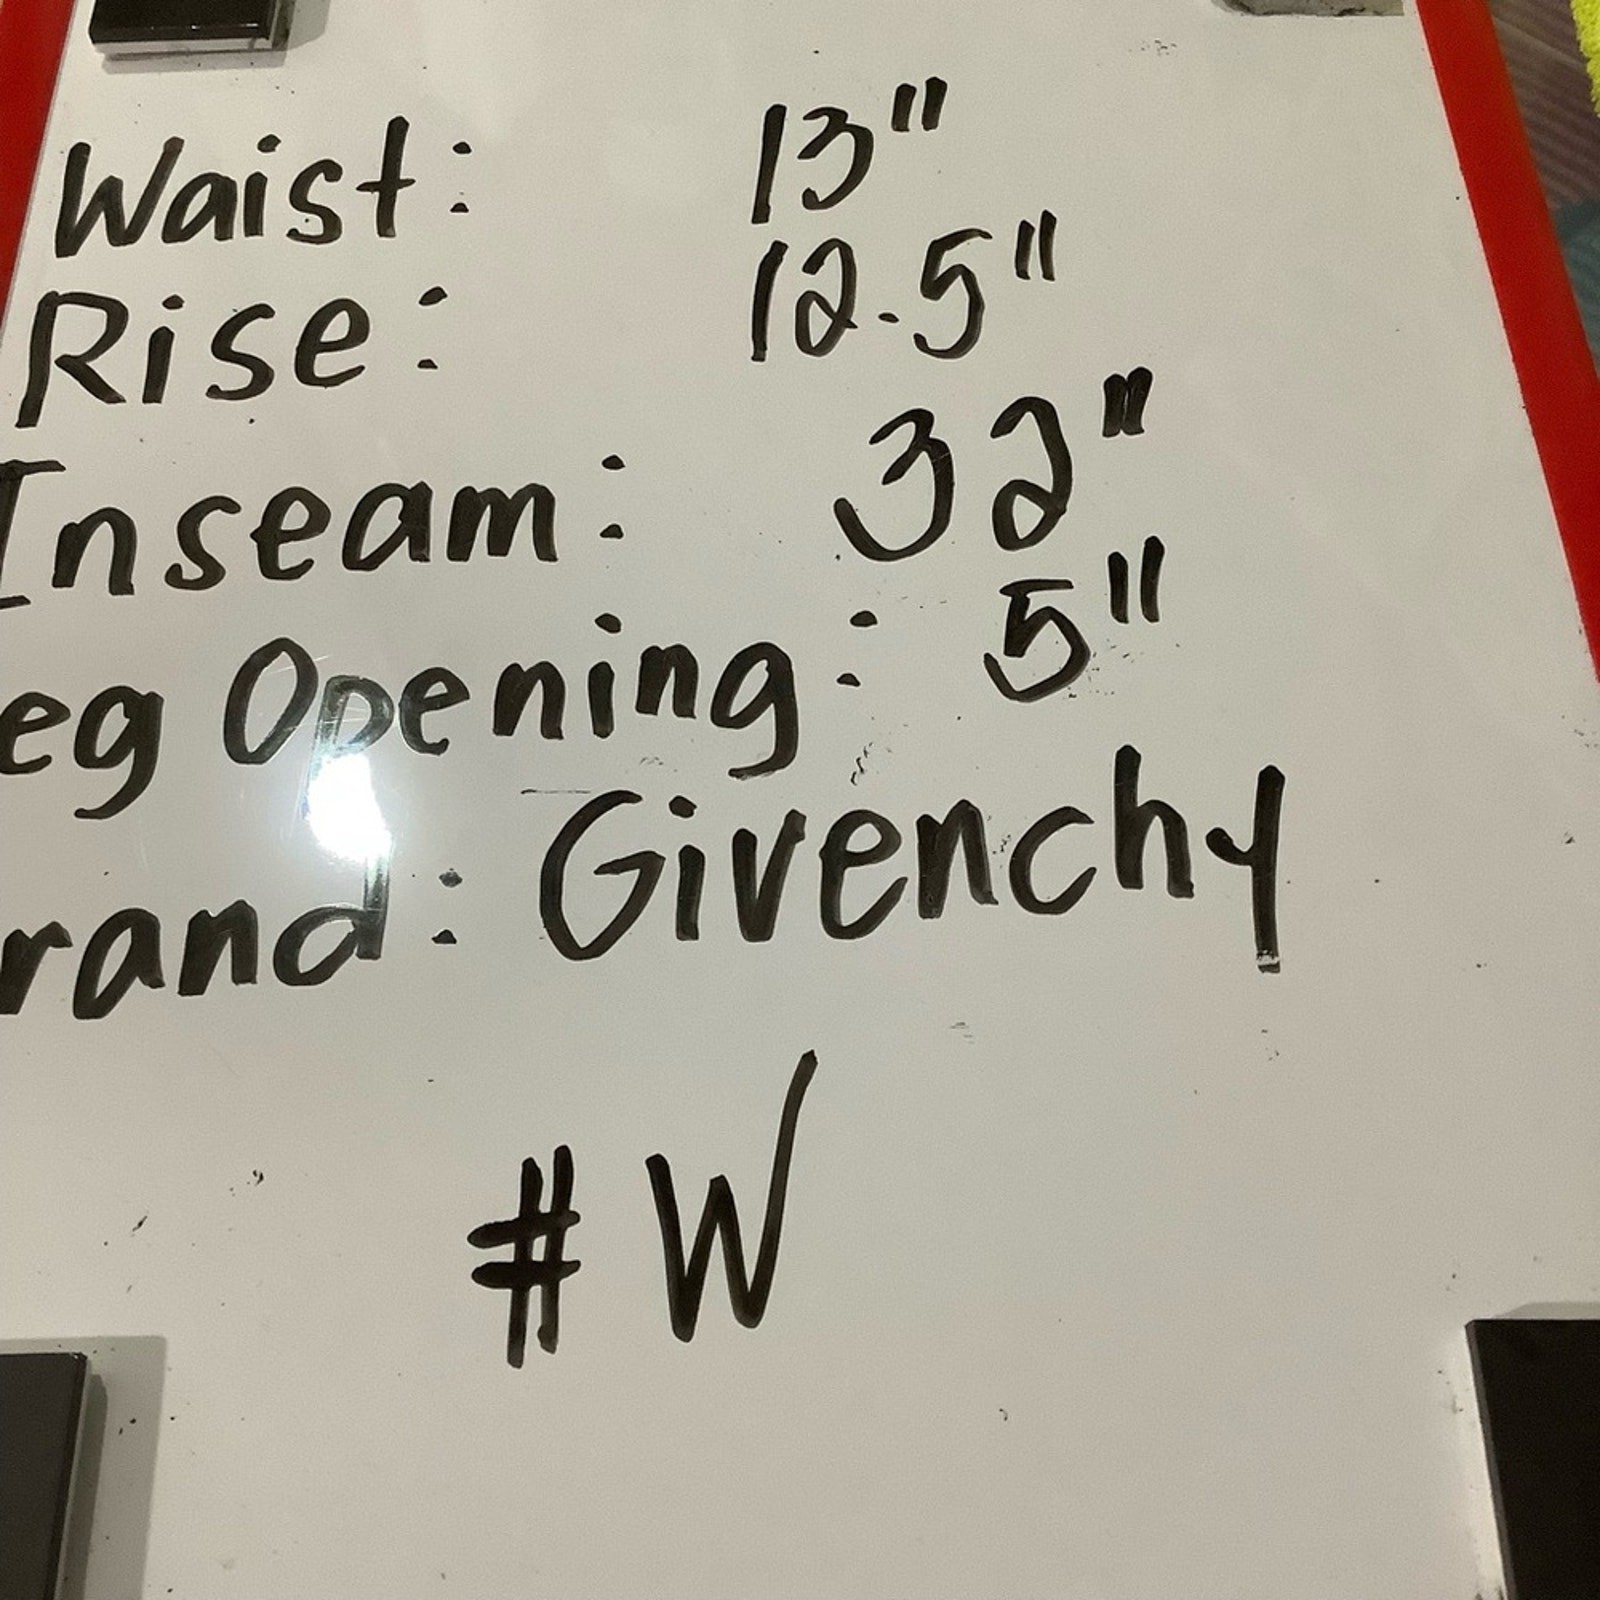 Waist: 13"
Rise: 12.5"
Inseam: 32"
eg Opening: 5"
rand: Givenchy
# W